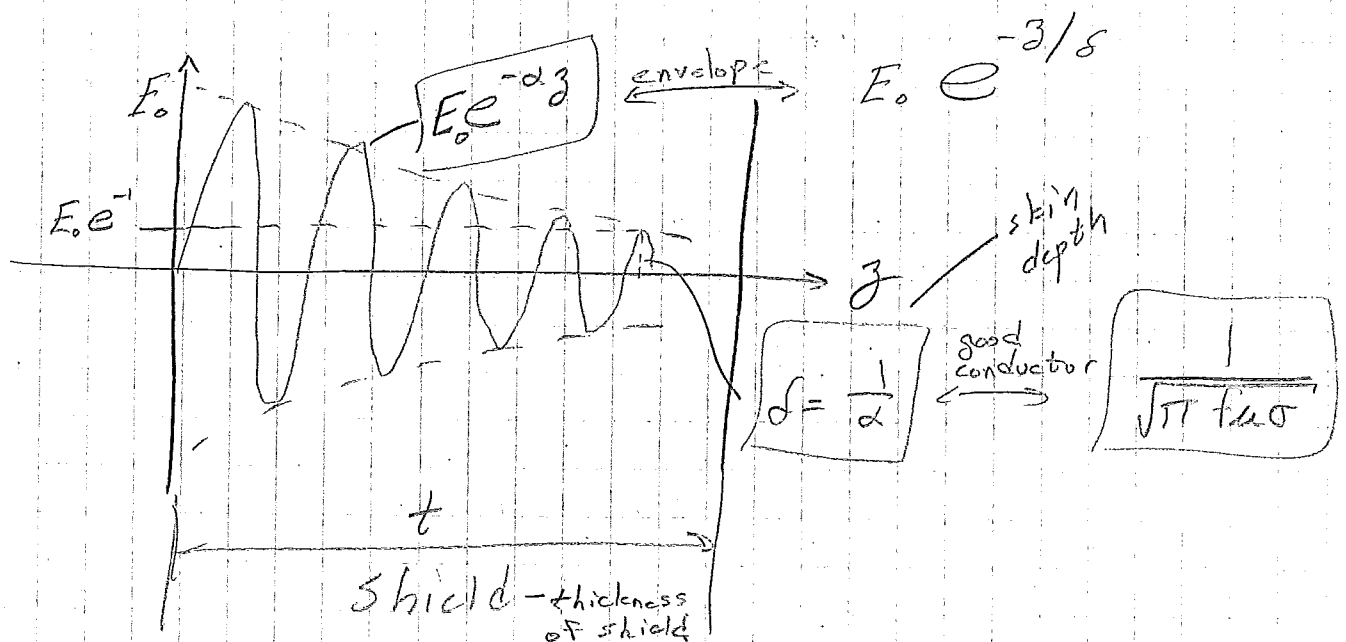 E₀
E₀e^{-αz}
envelope
E₀ e^{-z/δ}
E₀e^{-1}
z
skin
depth
δ = 1/α
good
conductor
1/√(π f μ σ)
t
Shield - thickness
of shield